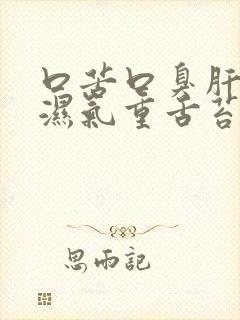 口苦口臭肝
濕氣重舌苔
思雨記